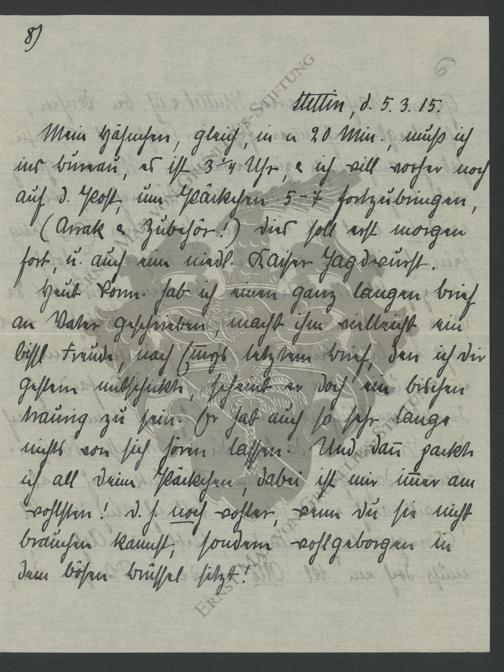 8)
6
Stettin, d. 5.3.15.
Mein Hähnchen, gleich, in n 20 Min., muß ich
ins büreau, es ist 3 3/4 Uhr, & ich will vorher noch
auf d. Post, um Päckchen 5-7 fortzubringen,
(Arrak & Zubehör!) dies soll erst morgen
fort, u. auch eine niedl. Kaiser Jagdwurst.
Heut Vorm. hab ich einen ganz langen brief
an Vater geschrieben, macht ihm vielleicht ein
bißl Freude, nach letztem brief, den ich dir
gestern mitschickte, scheint er doch ein bischen
traurig zu sein. Er hat auch so sehr lange
nichts von sich hören lassen. Und dañ packte
ich all deine Päckchen, dabei ist mir im̅er am
wohlsten! d.h. noch wohler, wenn du sie nicht
brauchen kannst, sondern wohlgeborgen in
dem bösen brüssel sitzt!
ERNST STIFTUNG